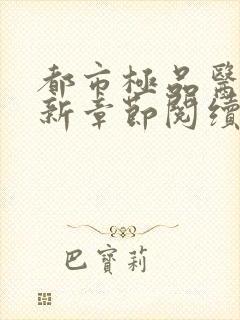 都市極品醫
新章節閱讀
巴寶莉